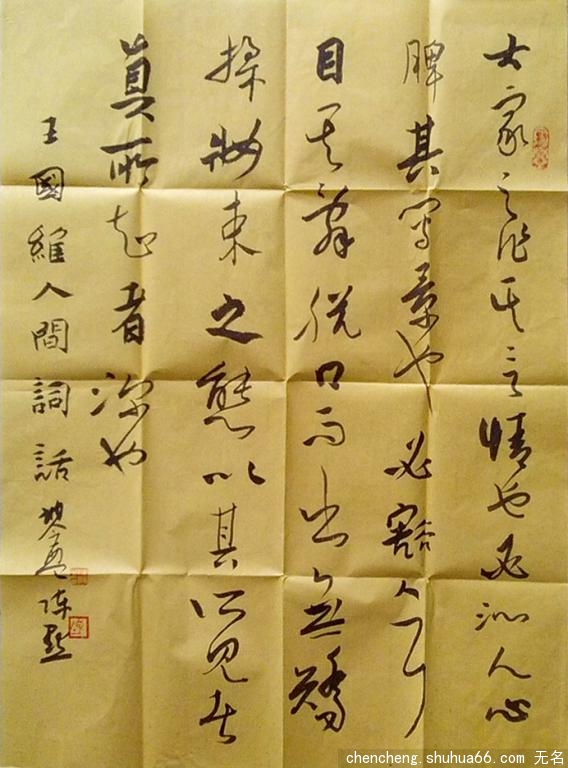 大家之作其言情也必沁人心
脾其寫景也必豁人耳
目其辭脱口而出無矯
揉妝束之態以其所見者
真所知者深也
王國維人間詞話
chencheng.shuhua66.com 无名